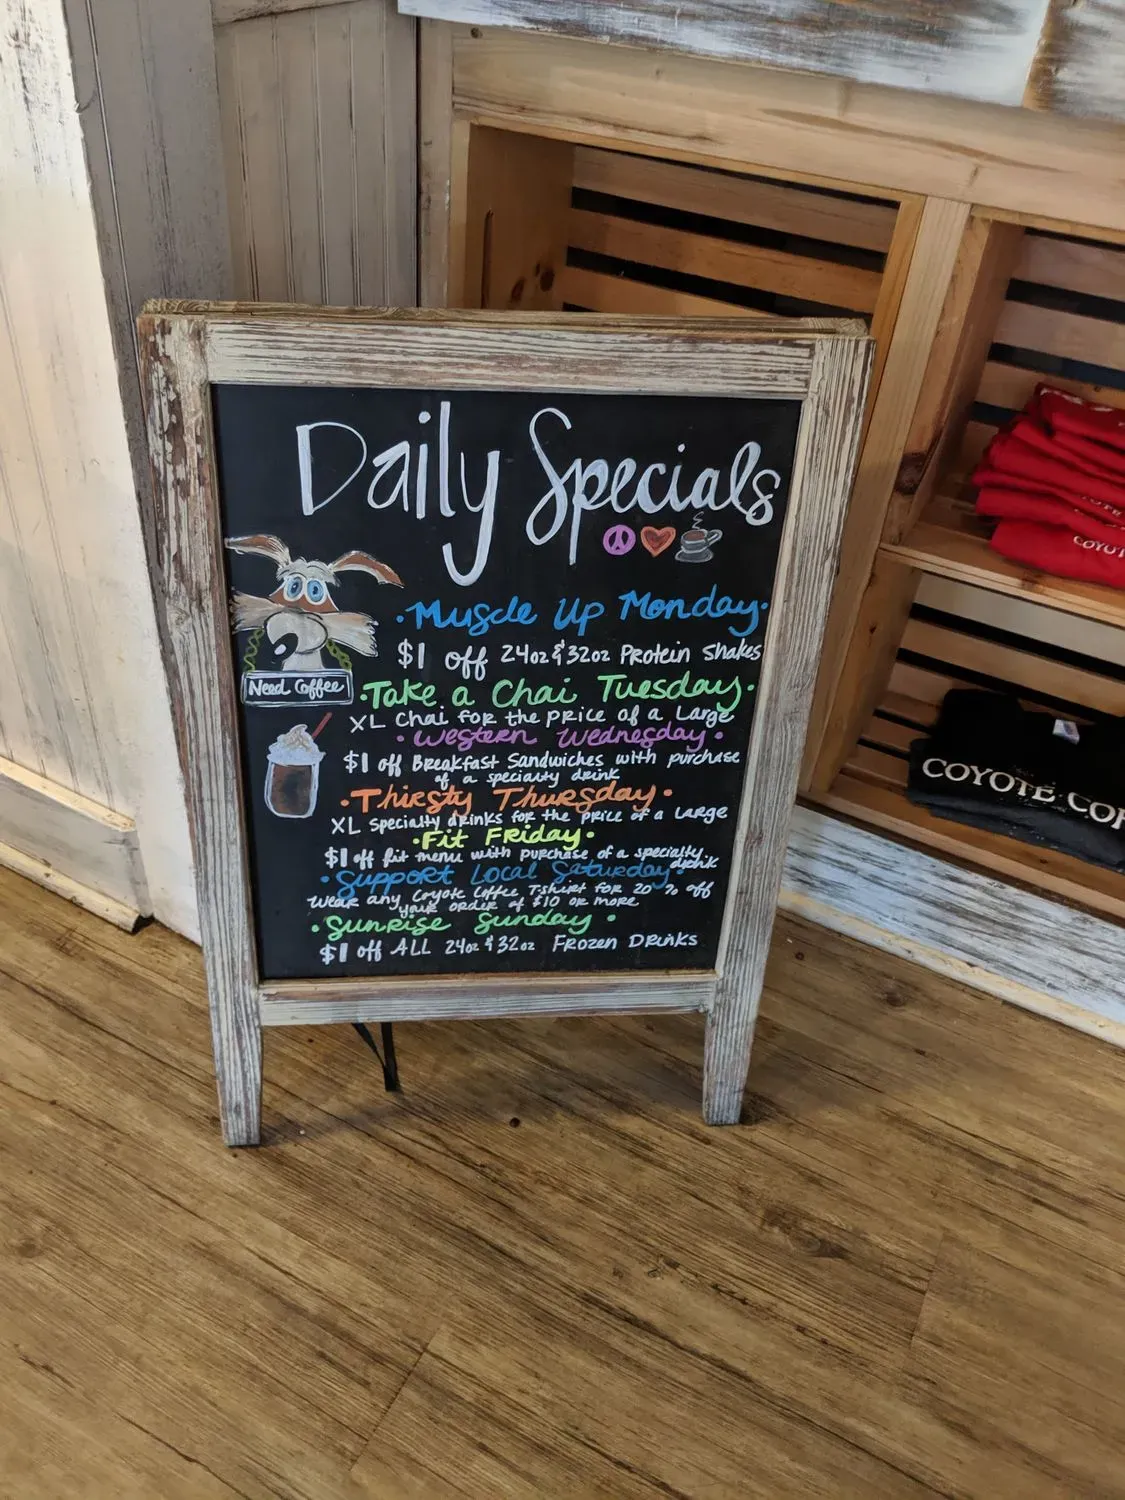 Daily Specials
• Muscle Up Monday •
$1 off 24oz & 32oz Protein Shakes
Need Coffee
• Take a Chai Tuesday •
XL Chai for the price of a Large
• Western Wednesday •
$1 off Breakfast Sandwiches with purchase
of a specialty drink
• Thirsty Thursday •
XL specialty drinks for the price of a Large
• Fit Friday •
$1 off fit menu with purchase of a specialty
drink
• Support Local Saturday •
Wear any Coyote Coffee T-shirt for 20% off
your order of $10 or more
• Sunrise Sunday •
$1 off ALL 24oz & 32oz Frozen Drinks
COYOTE COF